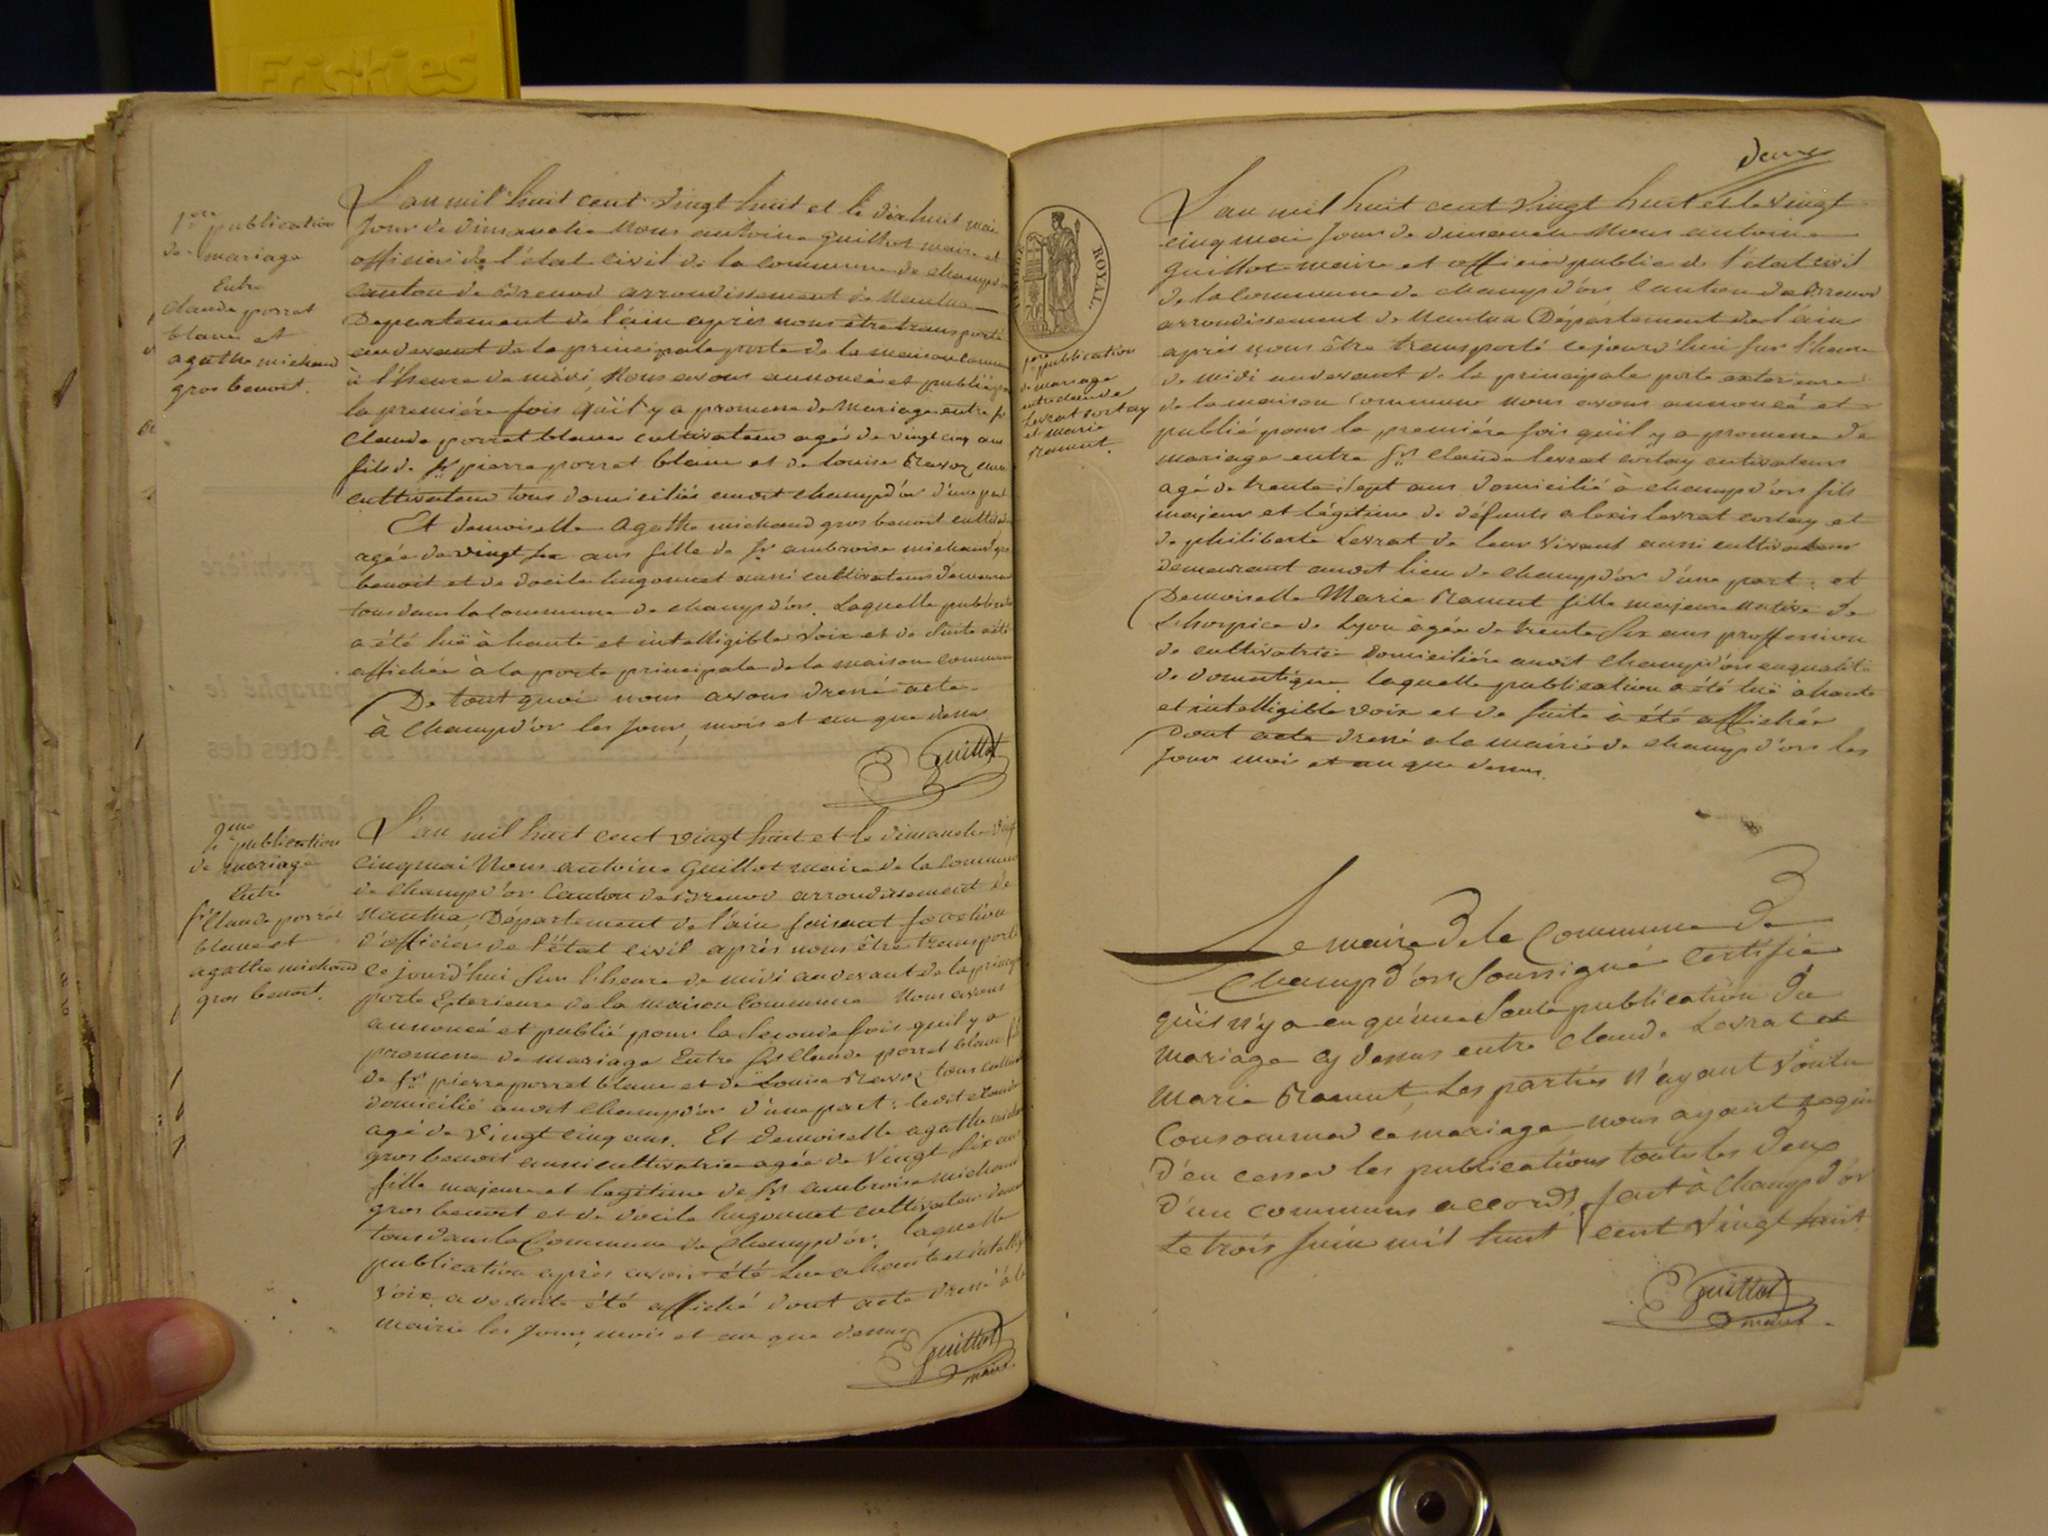 Friskies
1ere publication
de mariage
Entre
Claude porret
blanc et
agathe michaud
gros benoit.
L'an mil huit cent vingt huit et le dix huit mai
jour de dimanche Nous antoine Guillot maire et
officier de l'état civil de la commune de champd'or
canton de Brenod arrondissement de Nantua
Département de l'ain après nous être transporté
au devant de la principale porte de la maison commune
à l'heure de midi, Nous avons annoncé et publié pour
la première fois qu'il y a promesse de Mariage entre sr
Claude porret blanc cultivateur agé de vingt cinq ans
fils de sr pierre porret blanc et de louise Ravoz aussi
cultivateurs tous domiciliés audit champd'or d'une part
Et demoiselle Agathe michaud gros benoit cultivatrice
agée de vingt six ans fille de sr ambroise michaud gros
benoit et de docile hugonnet aussi cultivateurs demeurant
tous dans la commune de champd'or. Laquelle publication
a été luë à haute et intelligible voix et de suite a été
affichée à la porte principale de la maison commune
De tout quoi nous avons dressé acte
à Champd'or les jour, mois et an que dessus
Guillot
2me publication
de mariage
Entre
sr Claude porret
blanc et
agathe michaud
gros benoit.
L'an mil huit cent vingt huit et le dimanche vingt
cinq mai Nous antoine Guillot maire de la commune
de Champd'or Canton de Brenod arrondissement de
Nantua, Département de l'ain faisant fonction
d'officier de l'état civil après nous être transporté
ce jourd'hui sur l'heure de midi au devant de la principale
porte Exterieure de la maison Commune Nous avons
annoncé et publié pour la seconde fois qu'il y a
promesse de mariage Entre sr Claude porret blanc fils
de sr pierre porret blanc et de Louise Ravoz tous cultivateurs
domicilié audit Champd'or d'une part: ledit Claude
agé de vingt cinq ans. Et demoiselle agathe michaud
gros benoit aussi cultivatrice agée de vingt six ans
fille majeure et legitime de sr ambroise michaud
gros benoit et de docile hugonnet cultivateurs demeurant
tous dans la Commune de Champd'or. laquelle
publication après avoir été lue a haute et intelligible
voix, a de suite été affiché dont acte dressé à la
mairie les jour, mois et an que dessus
Guillot
maire
deux
TIMBRE ROYAL
1ere publication
de mariage
entre claude
Levrat cortay
et marie
Ramut.
L'an mil huit cent vingt huit et le vingt
cinq mai jour de dimanche Nous antoine
Guillot maire et officier public de l'état civil
de la commune de champd'or canton de Brenod
arrondissement de Nantua Département de l'ain
après nous être transporté ce jourd'hui sur l'heure
de midi au devant de la principale porte exterieure
de la maison commune nous avons annoncé et
publié pour la première fois qu'il y a promesse de
mariage entre sr Claude levrat cortay cultivateur
agé de trente sept ans domicilié à champd'or fils
majeur et légitime de défunts alexis levrat cortay et
de philiberte Levrat de leur vivant aussi cultivateurs
demeurant audit lieu de champd'or d'une part: et
Demoiselle Marie Ramut fille majeure Native de
L'hospice de Lyon agée de trente six ans proffession
de cultivatrice domiciliée audit champd'or en qualité
de domestique, laquelle publication a été luë à haute
et intelligible voix et de suite à été affichée
Dont acte dressé a la mairie de champd'or les
jour mois et an que dessus.
Le maire de la Commune de
Champd'or Soussigné Certifie
qu'il n'y a eu qu'une seule publication du
mariage cy dessus entre Claude Levrat et
Marie Ramut, Les parties n'ayant voulu
Consommer ce mariage nous ayant requis
d'en cesser les publications toutes les deux
d'un commun accord, fait à Champd'or
Le trois juin mil huit cent vingt huit
Guillot
maire